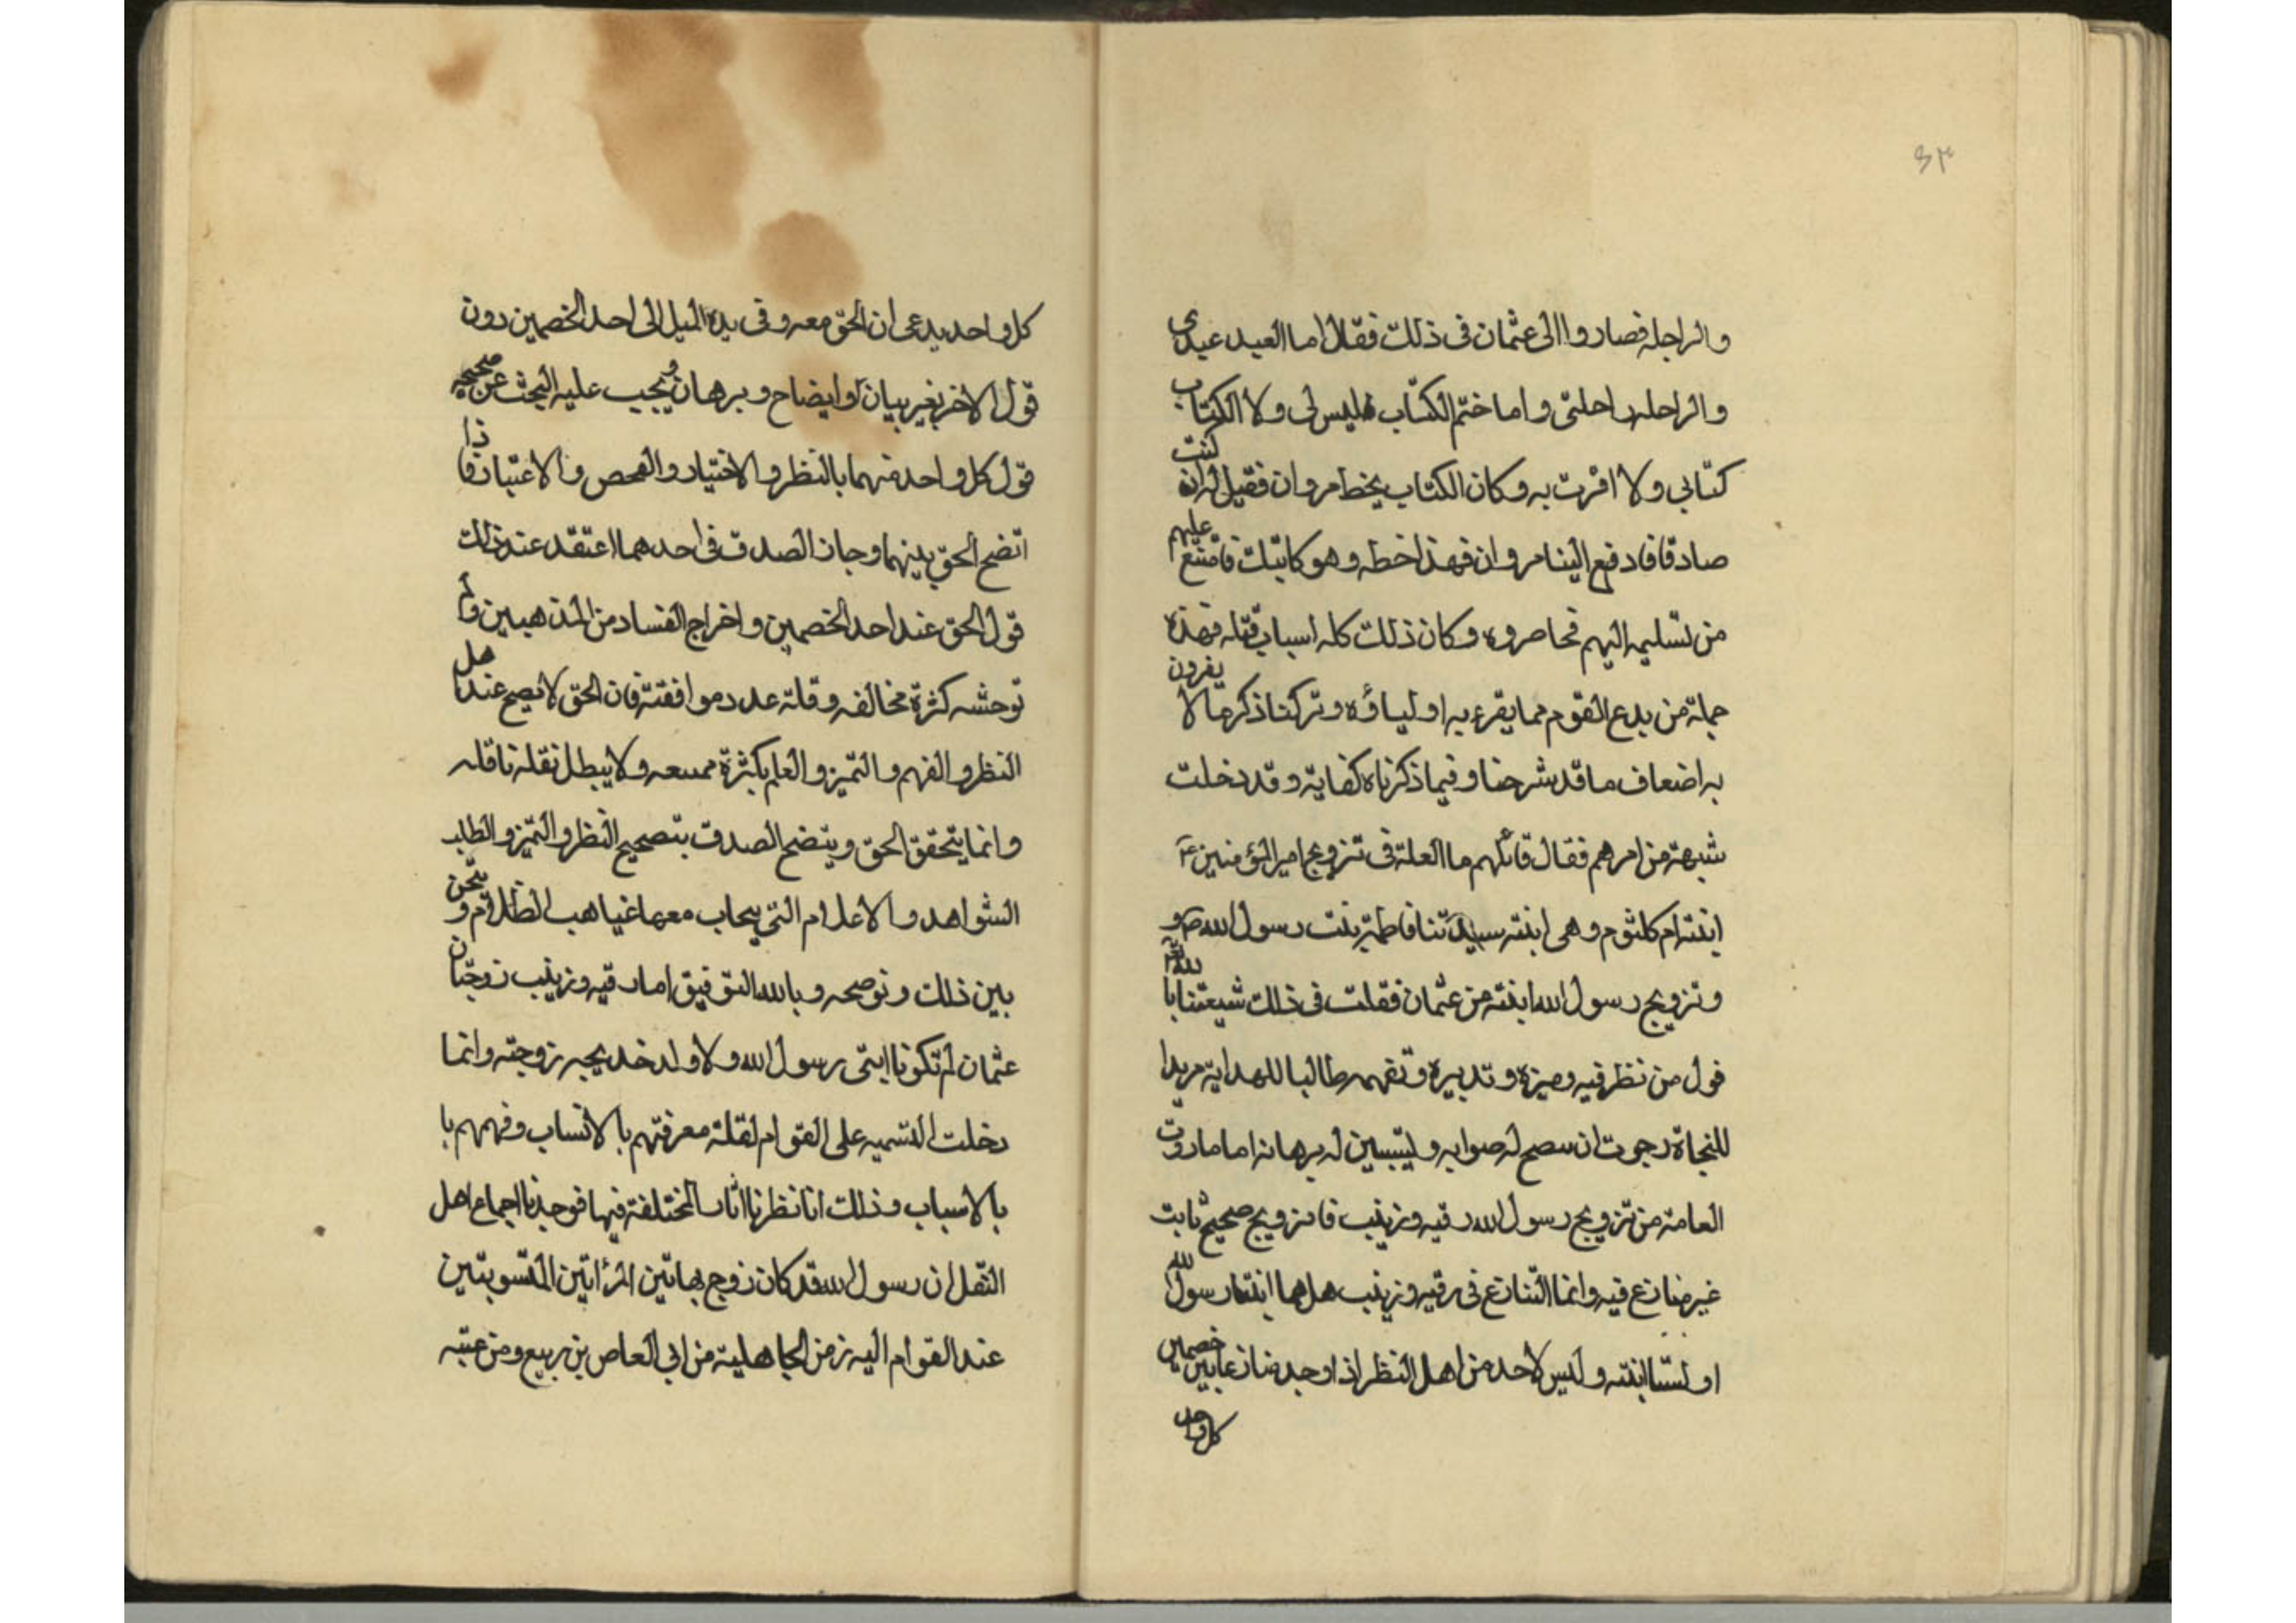 ٤٣
والراجله فصاروا الى عثمان فى ذلك فقال اما العبد عبدى
والراحله راحلتى واما ختم الكتاب فليس لى ولا الكتاب
كتابى ولا امرت به وكان الكتاب بخط مروان فقيل له ان كنت
صادقا فادفع الينا مروان فهذا خطه وهو كاتبك فامتنع عليهم
من تسليمه اليهم فحاصروه وكان ذلك كله اسباب قتله فهذه
جملة من بدع القوم مما يقرء به اولياؤه وتركنا ذكر ما لا يقرون
به اضعاف ما قد شرحنا وفيما ذكرناه كفاية وقد دخلت
شبهة من امرهم فقال قائلهم ما العلة فى تزويج امير المؤمنين ع
ابنته ام كلثوم وهى ابنته سيدتنا فاطمة بنت رسول الله ص و
وتزويج رسول الله ابنته من عثمان فقلت فى ذلك شيعتنا با
قول من نظر فيه وميزه وتدبيره وتفهمه طالبا للهداية مريدا
للنجاة رجوت ان يصح له صوابه وليتبين له برهانه اما ما روت
العامة من تزويج رسول الله رقيه وزينب فالتزويج صحيح ثابت
غير منازع فيه وانما التنازع فى رقيه وزينب هل هما ابنتا رسول الله
او ليستا ابنته وليس لاحد من اهل النظر اذا وجد منازعا بين خصمين
كل واحد
كل واحد يدعى ان الحق معه وفى يده الميل الى احد الخصمين دون
قول الاخر بغير بيان او ايضاح وبرهان ويجب عليه البحث عن صحيحه
قول كل واحد منهما بالنظر والاختيار والفحص والاعتبار فاذا
اتضح الحق بينهما وجان الصدق فى احدهما اعتقد عند ذلك
قول الحق عند احد الخصمين واخراج الفساد من المذهبين ولم
توحشه كثرة مخالفه وقلة عدد موافقته فان الحق لا يصح عند اهل
النظر والفهم والتميز والعلم بكثرة ممسعه ولا يبطل نقلة ناقله
وانما يتحقق الحق ويتضح الصدق بتصحيح النظر والتميز والطلب
الشواهد والاعلام التى يحاب معها غياهب الظلام ونحن
بين ذلك ونوضحه وبالله التوفيق اما رقيه وزينب زوجتان
عثمان لم تكونا ابنتى رسول الله ولا ولد خديجه زوجته وانما
دخلت التسميه على القوام لقلة معرفتهم بالانساب وفهمهم با
بالاسباب وذلك انا نظرنا اثار المختلفة فيها فوجدنا اجماع اهل
النقل ان رسول الله قد كان زوج بهاتين المرأتين المنسوبتين
عند القوام اليه زمن الجاهلية من ابى العاص بن ربيع ومن عتبه